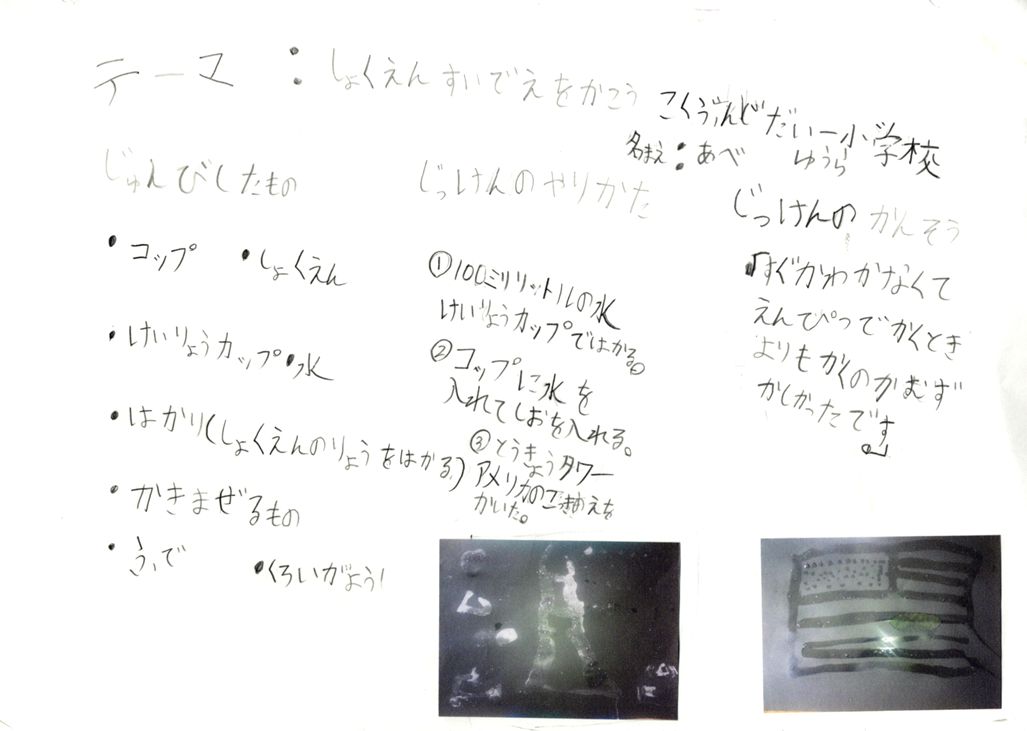 テーマ：しょくえんすいでえをかこう
こくぶんじだい一小学校
名まえ：あべ ゆうら
じゅんびしたもの
・コップ ・しょくえん
・けいりょうカップ・水
・はかり(しょくえんのりょうをはかる)
・かきまぜるもの
・ふで ・くろいがようし
じっけんのやりかた
①100ミリリットルの水
けいりょうカップではかる。
②コップに水を
入れてしおを入れる。
③とうきょうタワー
アメリカのこっきのえを
かいた。
じっけんのかんそう
「すぐかわかなくて
えんぴつでかくとき
よりもかくのがむず
かしかったです。」